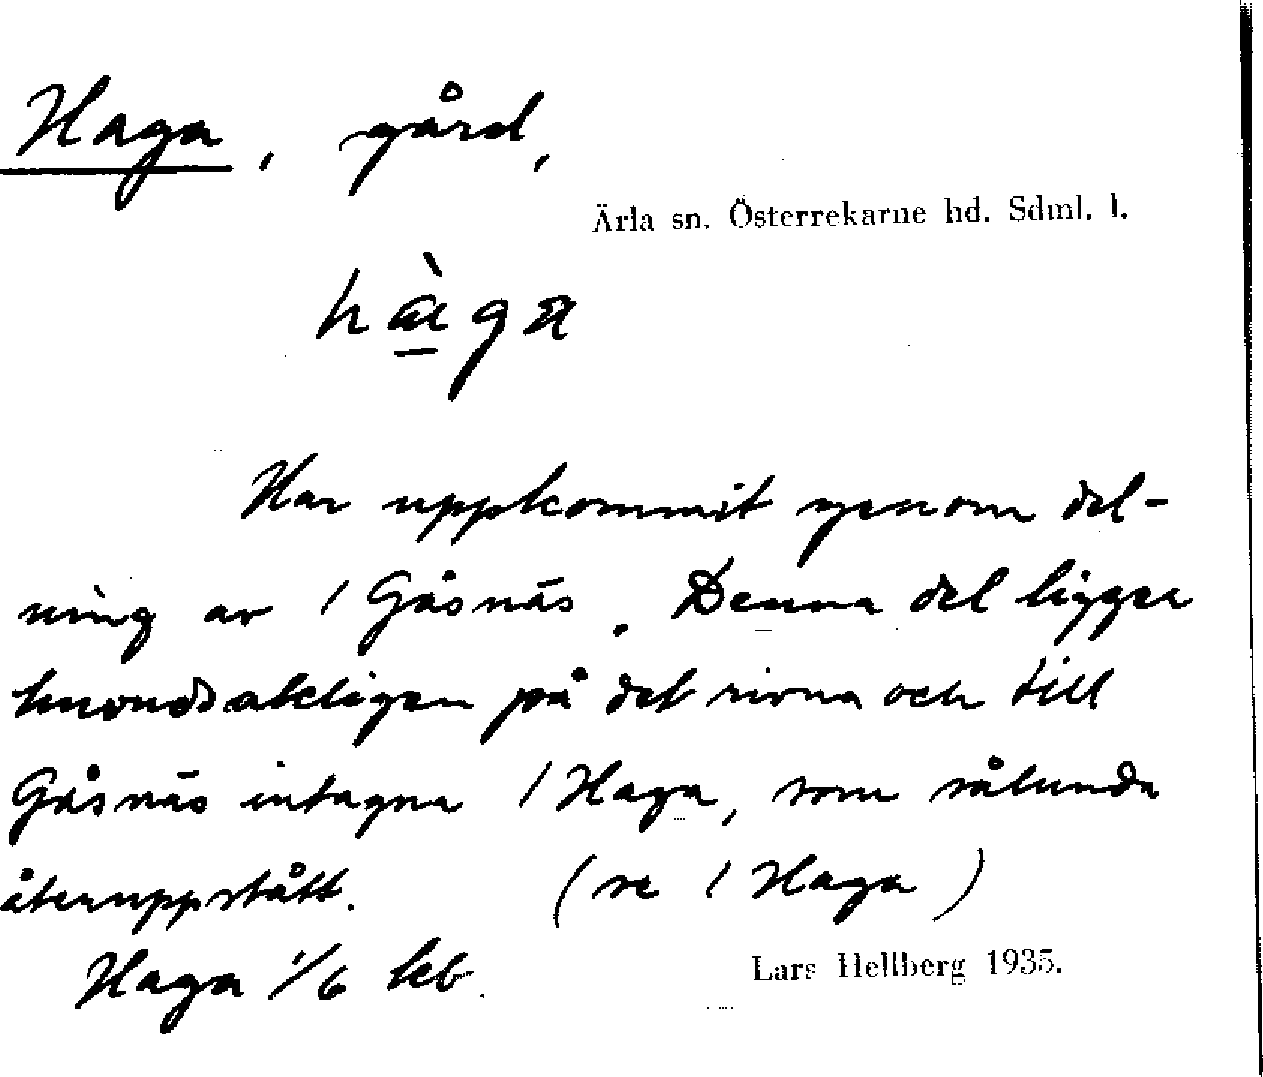 Haga, gård,
Ärla sn. Österrekarne hd. Sdml. l.
hàga
Har uppkommit genom del-
ning av / Gåsnäs. Denna del ligger
huvudsakligen på det rivna och till
Gåsnäs intagna / Haga, som sålunda
återuppstått. (se / Haga)
Haga 1/6
Lars Hellberg 1935.